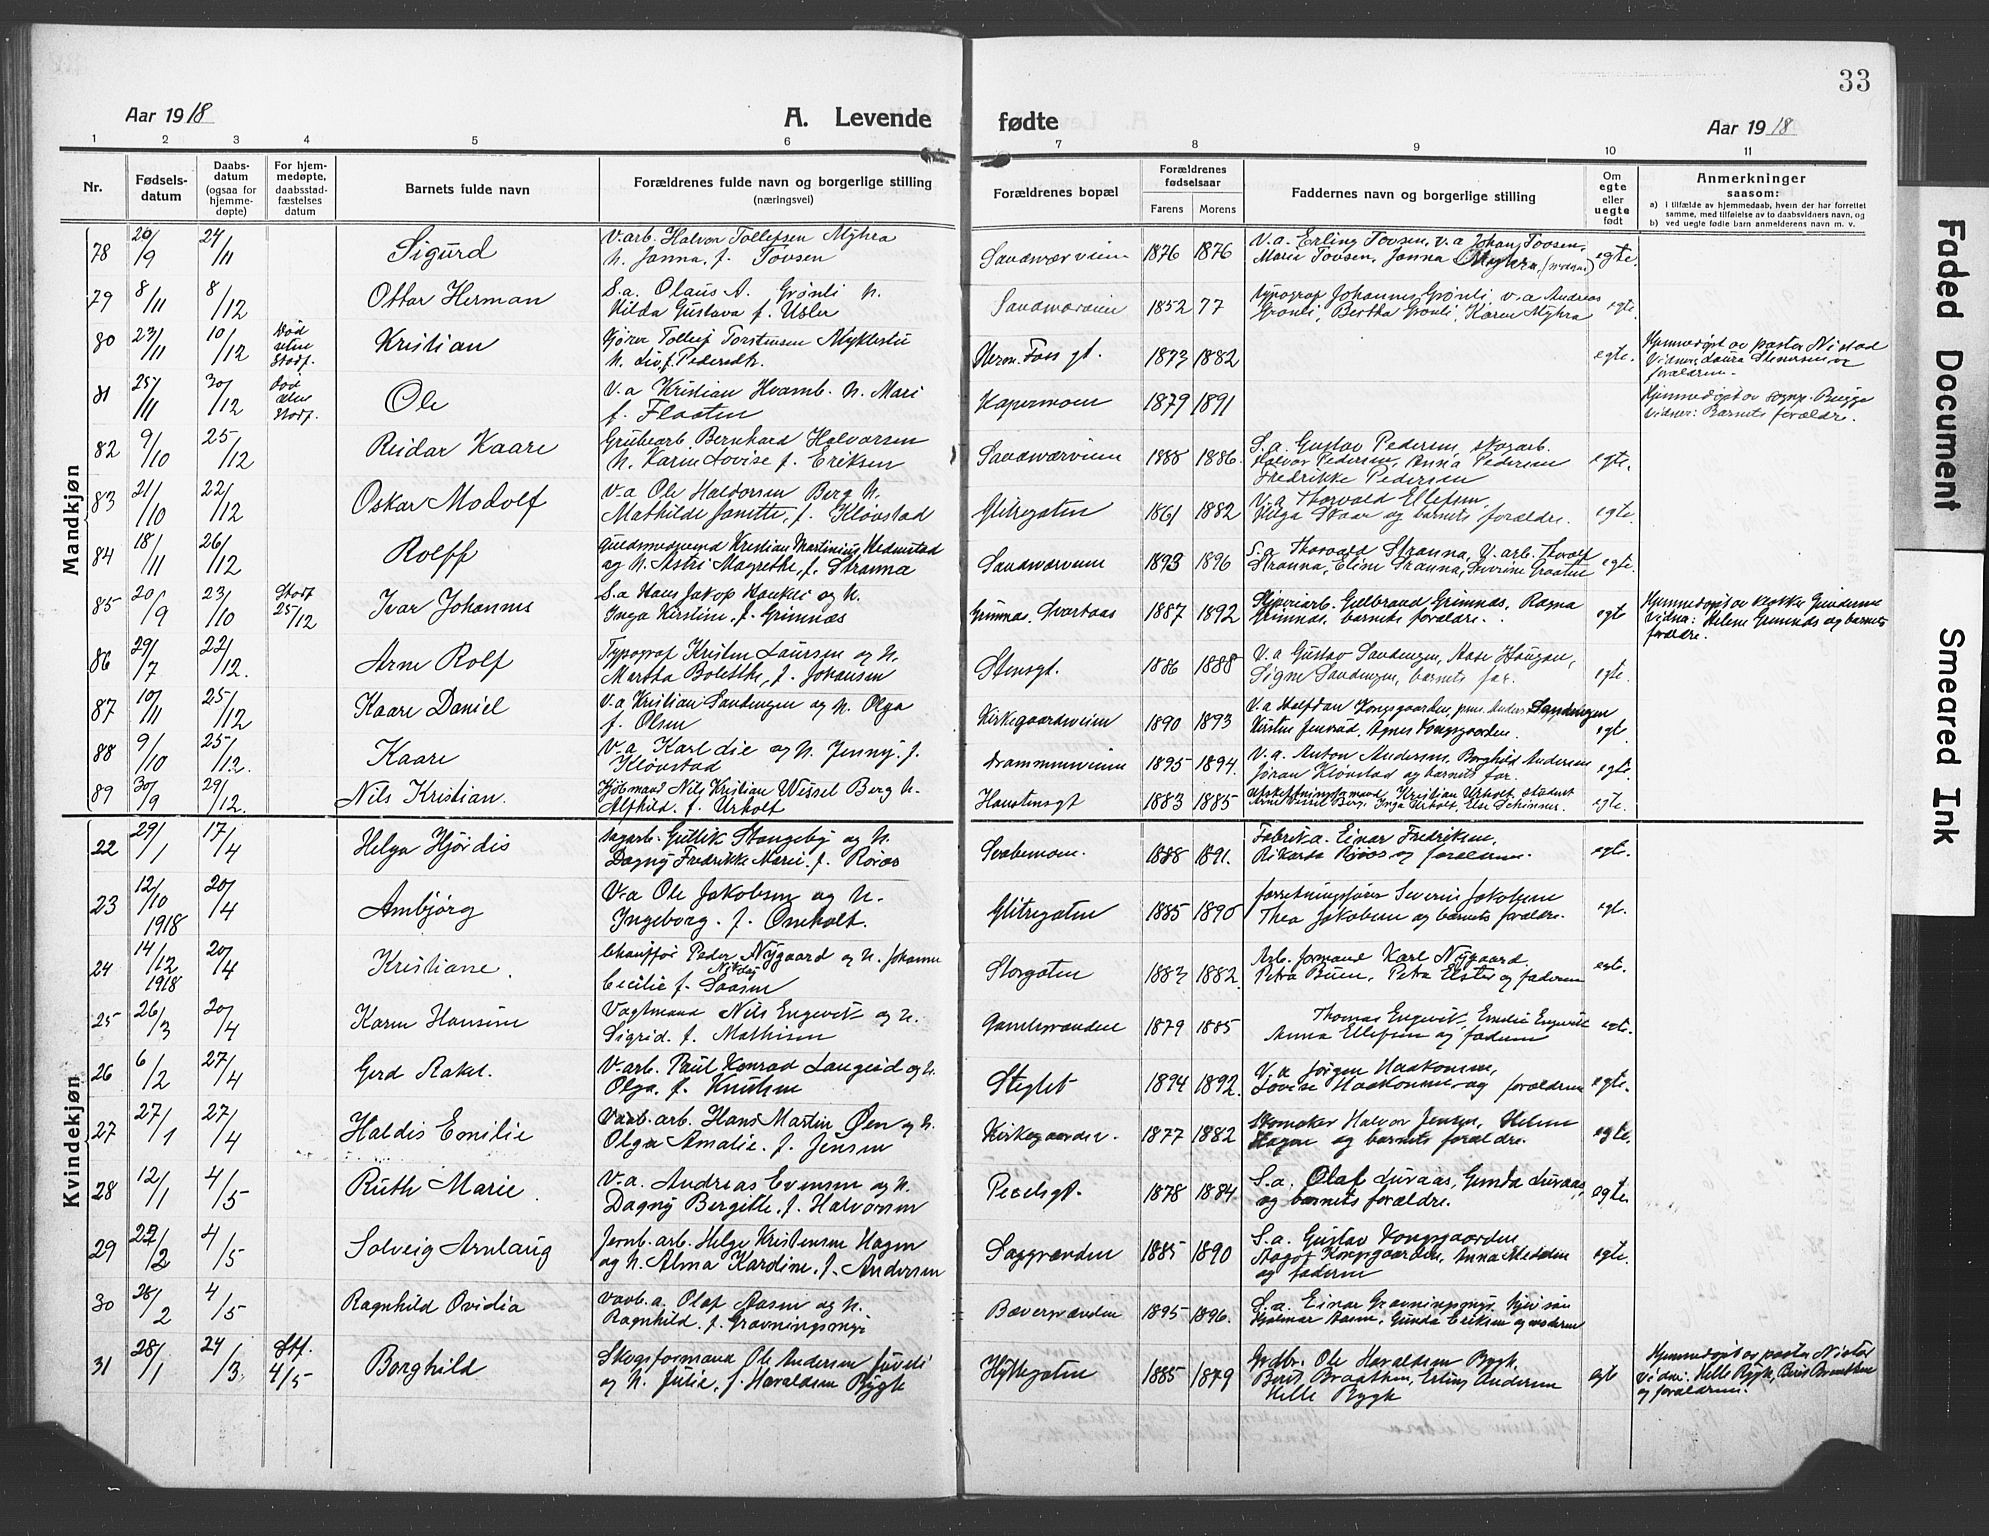 33
Aar 1918
A. Levende
fødte
Aar 1918
1 2 3 4 5 6 7 8 9 10 11
Nr.
Fødsels-
datum
Daabs-
datum
(ogsaa for
hjemme-
døpte)
For hjem-
medøpte,
daabsstad-
fæstelses
datum
Barnets fulde navn
Forældrenes fulde navn og borgerlige stilling
(næringsvei)
Forældrenes bopæl
Forældrenes
fødselsaar
Farens Morens
Faddernes navn og borgerlige stilling
Om
egte
eller
uegte
født
Anmerkninger
saasom:
a) i tilfælde av hjemmedaab, hvem der har forrettet
samme, med tilføielse av to daabsvidners navn, og
b) ved uegte fødte barn anmelderens navn m. v.
Mandkjøn
78 20/9 24/11 Sigurd V.arb. Halvor Tollefsen Myhra
h. Janna, f. Tovsen Sandsværveien 1876 1876 V.a. Erling Tovsen, v.a Johan Tovsen,
Marie Tovsen, Janna Myhra (moderen) egte.
79 8/11 8/12 Ottar Herman S.a. Olaus A. Grønli h.
Hilda Gustava f. Usler Sandsværveien 1852 77 Typograf Johannes Grønli, v.a Andreas
Grønli, Bertha Grønli, Karen Myhra egte.
80 23/11 10/12 død
uten
Stadf. Kristian Gjører Tollef Torstensen Myklestu
h. Liv f. Pedersdtr. Herm. Foss gt. 1873 1882 egte. Hjemmedøpt av pastor Nistad
Vidner: Laura Stenersen og
forældrene.
81 25/11 30/12 død
uten
Stadf. Ole V.a Kristian Hvamb. h. Mari
f. Flaaten Kapermoen 1879 1891 Hjemmedøpt av sognepr. Bugge
Vidner: Barnets forældre.
82 9/10 25/12 Reidar Kaare Grubearb. Bernhard Halvorsen
h. Karen Lovise f. Eriksen Sandsværveien 1888 1886. S.a. Gustav Pedersen, skogarb.
Halvor Pedersen, Anna Pedersen
Fredrikke Pedersen egte.
83 21/10 22/12 Oskar Modolf V.a Ole Haldorsen Berg h.
Mathilde Janette, f. Kløvstad Glitregaten 1861 1882 V.a Thorvald Ellefsen,
Helga Skaar og barnets forældre. egte.
84 18/11 26/12 Rolff Guldsmedsvend Kristian Martinius Hedenstad
og h. Astri Magrethe, f. Stranna Sandsværveien 1893 1896 S.a. Thorvald Stranna, V. arb. Thorolf
Stranna, Eline Stranna, Severine Graaten egte.
85 20/9 23/10 Stadf
25/12 Ivar Johannes S.a Hans Jakop Haukli og h.
Inga Kirstine, f. Grimnæs Grimnæs, Svartaas 1887 1892 Sliperiarb. Gulbrand Grimnæs, Ragna
Grimnæs, barnets forældre. egte Hjemmedøpt av klokker Gundersen
Vidner: Helene Grimnæs og barnets
forældre.
86 29/7 22/12. Arne Rolf Typograf Kristen Laursen og h.
Martha Bolette, f. Johansen Stensgt. 1886 1888 V.a Gustav Sandengen, Aase Haugan,
Signe Sandengen, barnets far. egte.
87 10/11 25/12 Kaare Daniel V.a Kristian Sandengen og h. Olga
f. Olsen Kirkegaardsveien 1890 1893 V.a Halfdan Kongsgaarden, Anders Sandengen
Kirstine Jensrud, Agnes Kongsgaarden. egte.
88 9/10 25/12. Kaare V.a Karl Lie og h. Jenny, f.
Kløvstad Drammensveien 1895 1894. V.a. Anton Andersen, Borghild Andersen
Jøran Kløvstad og barnets far. egte.
89 30/9 29/12. Nils Kristian. Kjøbmand Nils Kristian Wessel Berg h.
Alfhild. f. Urholt Hanstensgt 1883 1885 Kristian Urholt, student
Arne Wessel Berg, Inga Urholt, Else Schinner. egte.
Kvindekjøn
22 29/1 17/4 Helga Hjørdis Sagarb. Gullik Stangeby og h.
Dagny Fredrikke Marie, f. Roiaas Skabemoen. 1888 1891. Fabrik.a. Einar Fredriksen,
Rikarda og forældrene. egte.
23 12/10
1918 20/4 Ambjørg V.a Ole Jakobsen og h.
Ingeborg. f. Omholt. Glitregaten 1885 1890 Forretningsfører Severin Jakobsen
Thea Jakobsen og barnets forældre. egte.
24 14/12
1918 20/4 Kristiane. Chauffør Peder Nygaard og h. Johanne
Cecilie f. Saasen Storgaten 1883 1882. Arb. formand Karl Nygaard,
Petra Buen, Petra Elster og faderen egte.
25 26/3 20/4 Karen Hansine Vagtmand Nils Engevik og h.
Sigrid. f. Mathisen Gamlegrænden 1879 1885 Thomas Engevik, Emilie Engevik
Anna Ellefsen og faderen egte.
26 6/2 27/4 Gerd Rakel. V.arb. Paul Konrad Langeid og h.
Olga. f. Knutsen Steglet 1894 1892. V.a Jørgen Haakonsen,
Lovise Haakonsen og forældrene egte.
27 27/1 27/4 Haldis Emilie Vaab. arb. Hans Martin Øen og h.
Olga Amalie. f. Jensen Kirkegaardsv. 1877 1882 Skomaker Halvor Jensen, Helene
Hagen og barnets forældre. egte.
28 12/1 4/5 Ruth Marie. V.a. Andreas Evensen og h.
Dagny Bergitte. f. Halvorsen Peckelsgt. 1878 1884 S.a. Olaf Luraas, Gunda Luraas,
og barnets forældre. egte.
29 22/2 4/5 Solveig Arnlaug Jernb. arb. Helge Kristensen Hagen
og h. Alma Kardine. f. Andersen Saggrænden 1885 1890 S.a. Gustav Kongsgaarden
Aagot Kongsgaarden, Anna
og faderen egte.
30 28/2 4/5 Ragnhild Ovidia Vaab.a. Olaf Aasen og h.
Ragnhild. f. Gravningsmyr Bævergrænden 1895 1896. S.a. Einar Gravningsmyr,
Hjalmar Aasen, Gunda Eriksen og moderen
31 28/1 24/3 Stf.
4/5 Borghild Skogsformand Ole Andersen Juveli
og h. Julie, f. Haraldsen Bygk Hyttegaten 1885 1879 Grdbr. Ole Haraldsen Bygk.
Berit Braathen, Erling Andersen
Helle Bygk egte Hjemmedøpt av pastor Nistad
Vidner: Helle Bygk, Berit Braathen
og forældrene.
Faded Document
Smeared Ink